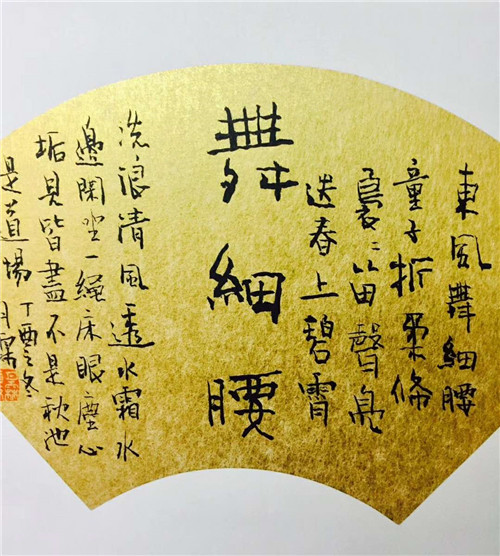 東風舞細腰
童子折柔條
裊〻笛聲亮
送春上碧霄
舞細腰
洗浪清風透水霜水
邊閑坐一繩床眼塵心
垢見皆盡不是秋池
是道場 丁酉之冬
月